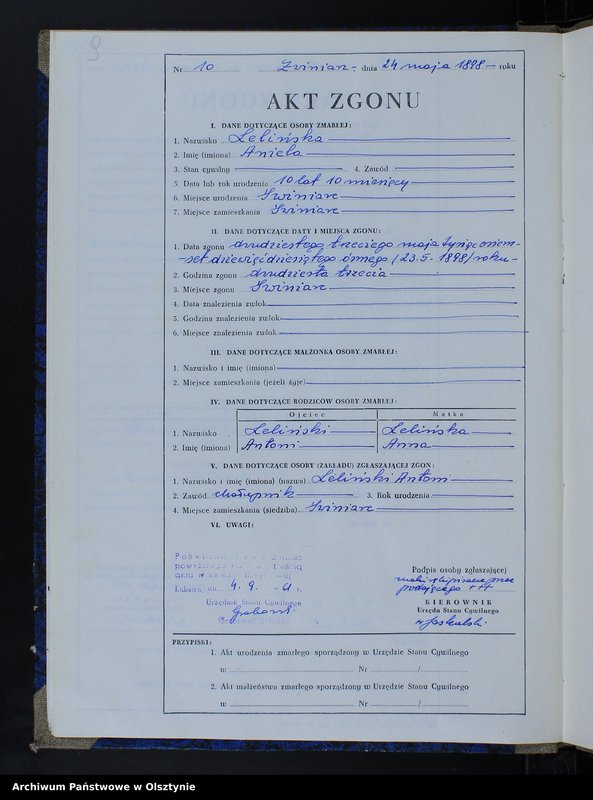 Nr 10 Zwiniarz, dnia 24 maja 1898 roku
AKT ZGONU
I. DANE DOTYCZĄCE OSOBY ZMARŁEJ:
1. Nazwisko Lelińska
2. Imię (imiona) Aniela
3. Stan cywilny 4. Zawód
5. Data lub rok urodzenia 10 lat 10 miesięcy
6. Miejsce urodzenia Zwiniarz
7. Miejsce zamieszkania Zwiniarz
II. DANE DOTYCZĄCE DATY I MIEJSCA ZGONU:
1. Data zgonu dwudziestego trzeciego maja tysiąc osiem-
-set dziewięćdziesiątego ósmego /23.5.1898/ roku-
2. Godzina zgonu dwudziesta trzecia
3. Miejsce zgonu Zwiniarz
4. Data znalezienia zwłok
5. Godzina znalezienia zwłok
6. Miejsce znalezienia zwłok
III. DANE DOTYCZĄCE MAŁŻONKA OSOBY ZMARŁEJ:
1. Nazwisko i imię (imiona)
2. Miejsce zamieszkania (jeżeli żyje)
IV. DANE DOTYCZĄCE RODZICÓW OSOBY ZMARŁEJ:
Ojciec Matka
1. Nazwisko Leliński Lelińska
2. Imię (imiona) Antoni Anna
V. DANE DOTYCZĄCE OSOBY (ZAKŁADU) ZGŁASZAJĄCEJ ZGON:
1. Nazwisko i imię (imiona) (nazwa) Leliński Antoni
2. Zawód chałupnik 3. Rok urodzenia
4. Miejsce zamieszkania (siedziba) Zwiniarz
VI. UWAGI:
aktu w
Lubawa, dn. 4. 9. 61 r.
Urzędnik Stanu Cywilnego
Podpis osoby zgłaszającej
podpisane przez
podającego +++
KIEROWNIK
Urzędu Stanu Cywilnego
PRZYPISKI:
1. Akt urodzenia zmarłego sporządzony w Urzędzie Stanu Cywilnego
w Nr /
2. Akt małżeństwa zmarłego sporządzony w Urzędzie Stanu Cywilnego
w Nr /
Archiwum Państwowe w Olsztynie